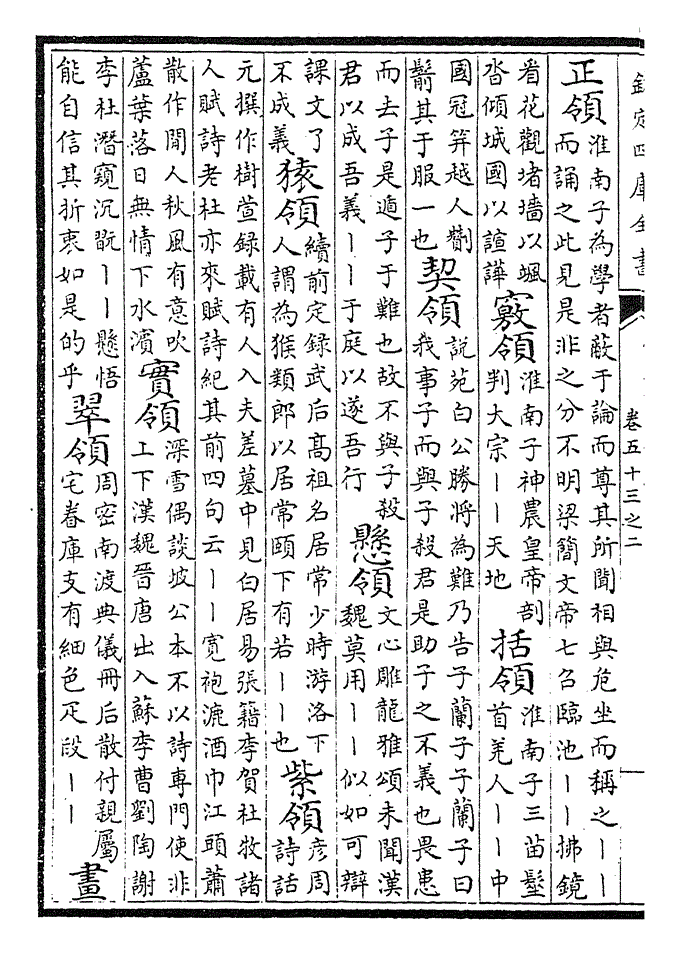 欽定四庫全書
卷五十三之二
正領 淮南子為學者蔽于論而尊其所聞相與危坐而稱之丨丨
而誦之此見是非之分不明梁簡文帝七召臨池丨丨拂鏡
看花觀堵墻以颯
沓傾城國以諠譁
竅領 淮南子神農皇帝剖
判大宗丨丨天地
括領 淮南子三苗髽
首羌人丨丨中
國冠笄越人劗
鬋其于服一也
契領 說苑白公勝將為難乃告子蘭子子蘭子曰
我事子而與子殺君是助子之不義也畏患
而去子是遁子于難也故不與子殺
君以成吾義丨丨于庭以遂吾行
懸領 文心雕龍雅頌未聞漢
魏莫用丨丨似如可辯
課文了
不成義
猿領 續前定録武后高祖名居常少時游洛下
人謂為猴類郎以居常頤下有若丨丨也
紫領 彦周
詩話
元撰作樹萱録載有人入夫差墓中見白居易張籍李賀杜牧諸
人賦詩老杜亦來賦詩紀其前四句云丨丨寛袍漉酒巾江頭蕭
散作閒人秋風有意吹
蘆葉落日無情下水濱
實領 深雪偶談坡公本不以詩專門使非
上下漢魏晉唐出入蘇李曹劉陶謝
李杜潛窺沉翫丨丨懸悟
能自信其折衷如是的乎
翠領 周密南渡典儀冊后散付親屬
宅眷庫支有細色疋段丨丨
畫